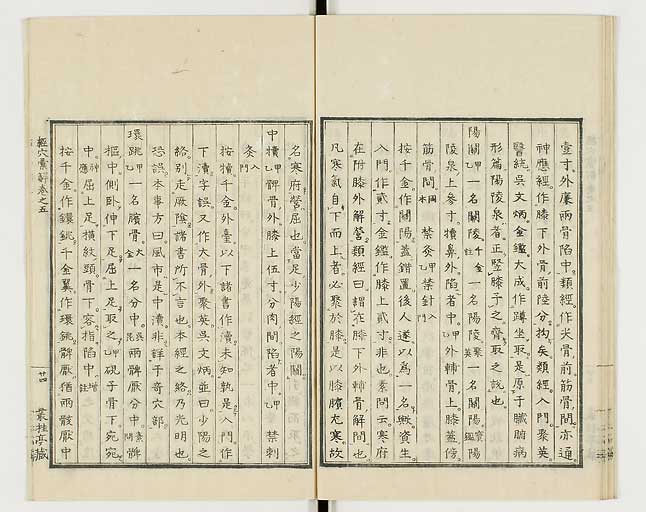 壹寸。外廉兩骨陷中。類經作犬骨前筋骨間。亦通。
神應經作膝下外骨。前陸分。拘矣。類經入門。聚英。
醫統。吳文炳。金鑑。大成作蹲坐取。是原于臟腑病
形篇陽陵泉者。正竪膝予之齊取之說也。
陽關甲乙一名關陵千金一名陽陵聚英一名關陽資生陽
陵泉上參寸。犢鼻外陷者中。甲乙外輔骨上。膝蓋傍
筋骨間。禁灸甲乙禁針入門
按千金作關陽。蓋錯置。後人遂以為一名歟。資生。
入門作貳寸。金鑑作膝上貳寸。非也。素問云。寒府
在附膝外解營。類經曰。謂在膝下外輔骨解間也。
凡寒氣自下而上者。必聚於膝。是以膝臏尤寒。故
名寒府。營。屈也。當足少陽經之陽關
中犢甲乙髀骨外。膝上伍寸。分肉間陷者中。甲乙禁刺
灸入門
按犢。千金。外臺以下諸書作瀆。未知孰是。入門作
下瀆。字誤。又作大骨外。聚英。吳文炳並曰。少陽之
絡。別走厥陰。諸書所不言也。本經之絡。乃光明也。
恐誤。本事方曰。風市是中瀆。非。詳于奇穴部。
環跳甲乙一名臏骨大全一名分中。兩髀厥分中。素問髀
樞中。側臥伸下足。屈上足取之。甲乙硯子骨下宛宛
中。神應屈上足。橫紋頭骨下。容指陷中。增註
按千金作鐶銚。千金翼作環銚。髀厭。循兩骰厭中
經穴彙解卷之五
廿四
叢桂亭藏